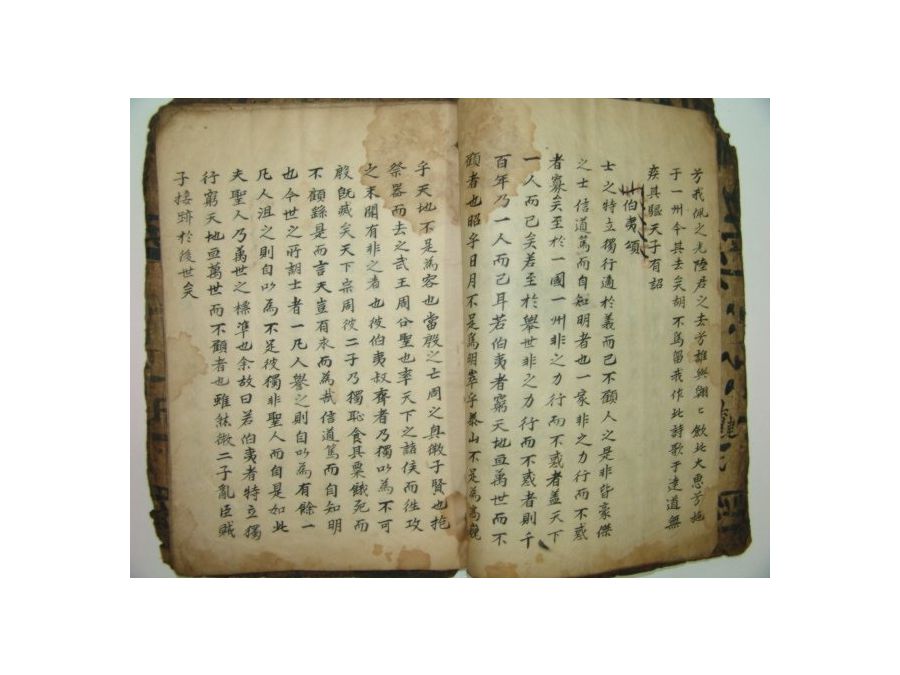 芳我佩之光陸君之去芳誰與翱〻歛此大惠芳施
于一州今其去矣胡不爲留我作此詩歌于逵道無
疾其驅天子有詔
伯夷頌
士之特立獨行適於義而已不顧人之是非皆豪傑
之士信道篤而自知明者也一家非之力行而不惑
者寡矣至於一國一州非之力行而不惑者盖天下
一人而已矣若至於舉世非之力行而不惑者則千
百年乃一人而已耳若伯夷者窮天地亘萬世而不
顧者也昭乎日月不足爲明崒乎泰山不足爲高巍
乎天地不足爲容也當殷之亡周之興微子賢也抱
祭器而去之武王周公聖也率天下之諸侯而徃攻
之未聞有非之者也彼伯夷叔齊者乃獨以為不可
殷旣滅矣天下宗周彼二子乃獨恥食其粟餓死而
不顧繇是而言夫豈有求而為哉信道篤而自知明
也今世之所胡士者一凡人譽之則自以為有餘一
凡人沮之則自以為不足彼獨非聖人而自是如此
夫聖人乃萬世之標準也余故曰若伯夷者特立獨
行窮天地亘萬世而不顧者也雖然微二子亂臣賊
子接跡於後世矣